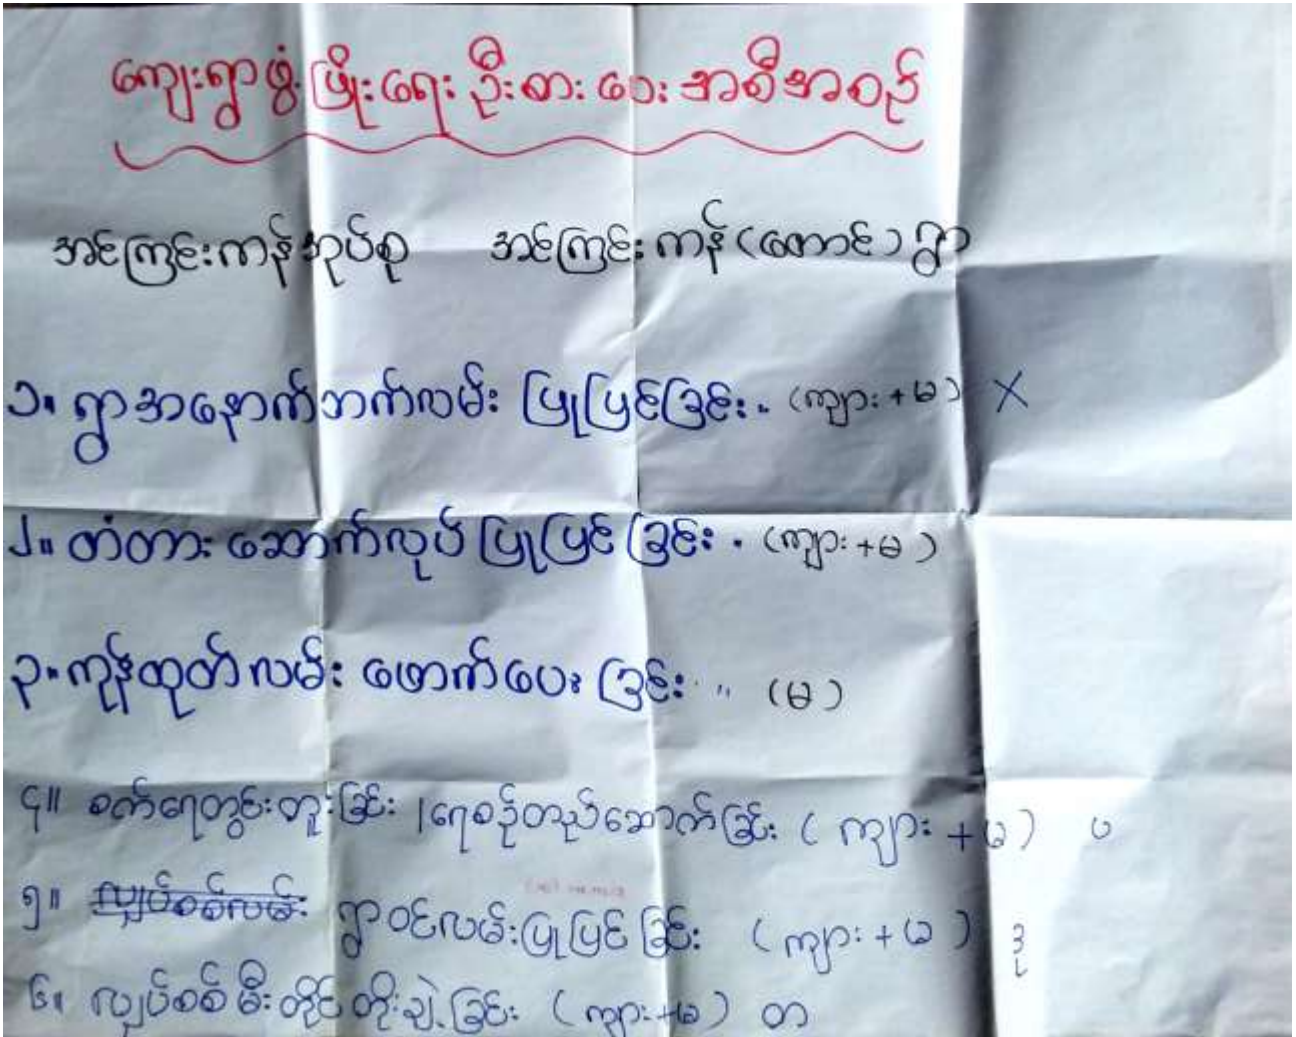 ကျေးရွာဖွံ့ဖြိုးရေး ဦးစားပေး အစီအစဉ်
အင်ကြင်းကန်အုပ်စု အင်ကြင်းကန်(တောင်)ရွာ
၁။ ရွာအနောက်ဘက်လမ်း ပြုပြင်ခြင်း။ (ကျား+မ) X
၂။ တံတား ဆောက်လုပ် ပြုပြင်ခြင်း။ (ကျား+မ)
၃။ ကုန်ထုတ်လမ်း ဖောက်ပေးခြင်း။ (မ)
၄။ စက်ရေတွင်းတူးခြင်း / ရေစဉ်တည်ဆောက်ခြင်း (ကျား+မ) ပ
၅။ လျှပ်စစ်လမ်း ရွာဝင်လမ်းပြုပြင်ခြင်း (ကျား+မ) ဒု
၆။ လျှပ်စစ်မီးတိုင်တိုးချဲ့ခြင်း (ကျား+မ) တ